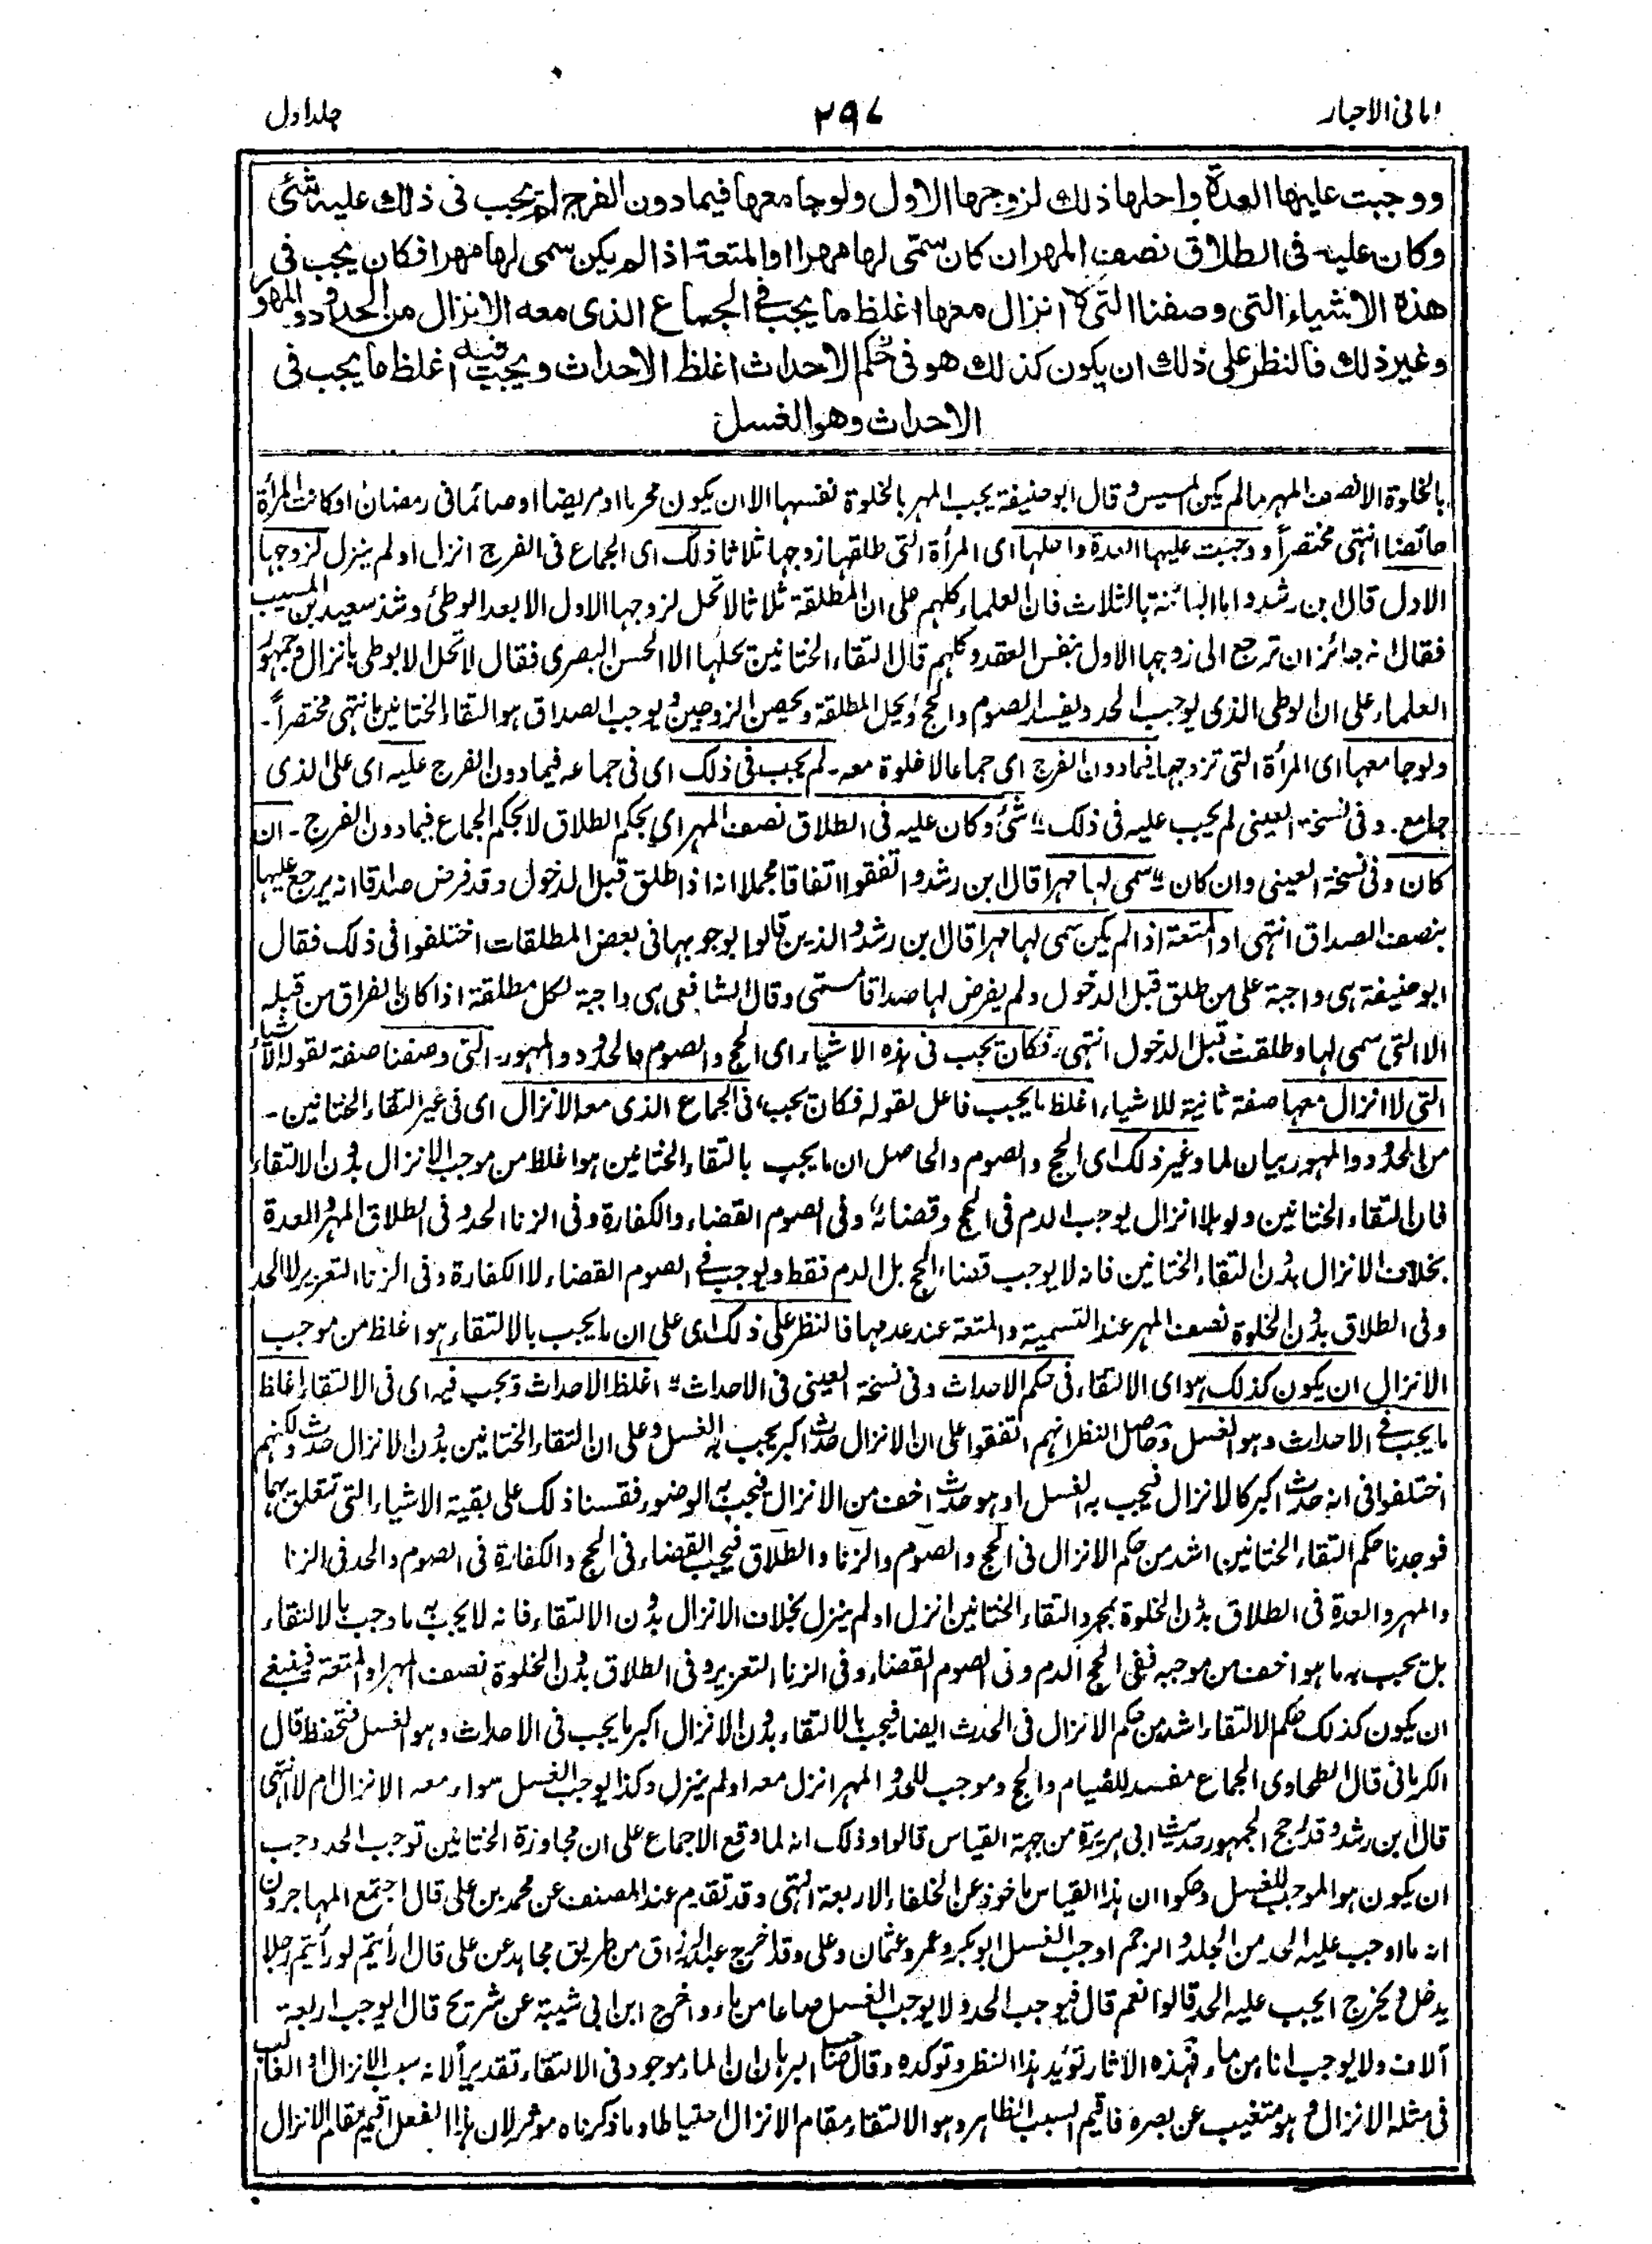 امانی الاحبار
٢٩٧
جلد اول
ووجبت علیها العدة واحلها ذلك لزوجها الاول ولو جامعها فیما دون الفرج لم یجب فی ذلك علیه شئ
وکان علیه فی الطلاق نصف المهر ان کان سمّی لها مهرا او المتعة اذا لم یکن سمی لها مهرا فکان یجب فی
هذه الاشیاء التی وصفنا التی لا انزال معها اغلظ ما یجب فی الجماع الذی معه الانزال من الحدود والمهور
وغیر ذلك فالنظر علی ذلك ان یکون کذلك هو فی حکم الاحداث اغلظ الاحداث ویجب فیه اغلظ ما یجب فی
الاحداث وهو الغسل
بالخلوة الا نصف المهر مالم یکن المسیس وقال ابو حنیفة یجب المهر بالخلوة نفسها الا ان یکون محرما او مریضا او صائما فی رمضان او کانت المرأة
حائضا انتهی مختصرًا ووجبت علیها العدة واحلها ای المرأة التی طلقها زوجها ثلاثا ذلک ای الجماع فی الفرج انزل او لم ینزل لزوجها
الاول قال ابن رشد واما البائنة بالثلاث فان العلماء کلهم علی ان المطلقة ثلاثا لا تحل لزوجها الاول الا بعد الوطئ وشذ سعید بن المسیب
فقال انه جائز ان ترجع الی زوجها الاول بنفس العقد وکلهم قال التقاء الختانین یحلها الا الحسن البصری فقال لا تحل الا بوطی بانزال وجمهور
العلماء علی ان الوطی الذی یوجب الحد ویفسد الصوم والحج ویحل المطلقة ویحصن الزوجین ویوجب الصداق هو التقاء الختانین انتهی مختصراً۔
ولو جامعها ای المرأة التی تزوجها فیما دون الفرج ای جماعا لا خلوة معه۔ لم یجب فی ذلک ای فی جماعه فیما دون الفرج علیه ای علی الذی
جامع۔ وفی نسخة العینی لم یجب علیه فی ذلک " شئ وکان علیه فی الطلاق نصف المهر ای بحکم الطلاق لا بحکم الجماع فیما دون الفرج۔ ان
کان وفی نسخة العینی وان کان " سمی لها مهرا قال ابن رشد واتفقوا اتفاقا مجملا انه اذا طلق قبل الدخول وقد فرض صداقا انه یرجع علیها
بنصف الصداق انتهی او المتعة اذا لم یکن سمی لها مهرا قال ابن رشد والذین قالوا بوجوبها فی بعض المطلقات اختلفوا فی ذلک فقال
ابو حنیفة هی واجبة علی من طلق قبل الدخول ولم یفرض لها صداقا مسمی وقال الشافعی هی واجبة لکل مطلقة اذا کان الفراق من قبله
الا التی سمی لها وطلقت قبل الدخول انتهی۔ فکان یجب فی هذه الاشیاء ای الحج والصوم والحدود والمهور۔ التی وصفنا صفة لقوله الاشیاء
التی لا انزال معها صفة ثانیة للاشیاء اغلظ ما یجب فاعل لقوله فکان یجب، فی الجماع الذی معه الانزال ای فی غیر التقاء الختانین۔
من الحدود والمهور بیان لما وغیر ذلک ای الحج والصوم والحاصل ان ما یجب بالتقاء الختانین هو اغلظ من موجب الانزال بدون الالتقاء
فان التقاء الختانین ولو بلا انزال یوجب الدم فی الحج وقضائه، وفی الصوم القضاء والکفارة وفی الزنا الحد وفی الطلاق المهر والعدة
بخلاف الانزال بدون التقاء الختانین فانه لا یوجب قضاء الحج بل الدم فقط ویوجب فی الصوم القضاء لا الکفارة وفی الزنا التعزیر لا الحد
وفی الطلاق بدون الخلوة نصف المهر عند التسمیة والمتعة عند عدمها فالنظر علی ذلک ای علی ان ما یجب بالالتقاء هو اغلظ من موجب
الانزال ان یکون کذلک هو ای الالتقاء فی حکم الاحداث وفی نسخة العینی فی الاحداث " اغلظ الاحداث ویجب فیه ای فی الالتقاء اغلظ
ما یجب فی الاحداث وهو الغسل وحاصل النظر انهم اتفقوا علی ان الانزال حدث اکبر یجب به الغسل وعلی ان التقاء الختانین بدون الانزال حدث ولکنهم
اختلفوا فی انه حدث اکبر کالانزال فیجب به الغسل او هو حدث اخف من الانزال فیجب به الوضوء فقسنا ذلک علی بقیة الاشیاء التی تتعلق بهما
فوجدنا حکم التقاء الختانین اشد من حکم الانزال فی الحج والصوم والزنا والطلاق فیجب القضاء فی الحج والکفارة فی الصوم والحد فی الزنا
والمهر والعدة فی الطلاق بدون الخلوة بمجرد التقاء الختانین انزل او لم ینزل بخلاف الانزال بدون الالتقاء فانه لا یجب به ما وجب بالالتقاء
بل یجب به ما هو اخف من موجبه ففی الحج الدم وفی الصوم القضاء وفی الزنا التعزیر وفی الطلاق بدون الخلوة نصف المهر او المتعة فینبغی
ان یکون کذلک حکم الالتقاء اشد من حکم الانزال فی الحدث ایضا فیجب بالالتقاء بدون الانزال اکبر ما یجب فی الاحداث وهو الغسل فتحفظ قال
الکرمانی قال الطحاوی الجماع مفسد للصیام والحج وموجب للحد والمهر انزل معه او لم ینزل وکذا یوجب الغسل سواء معه الانزال ام لا انتهی
قال ابن رشد وقد رجح الجمهور حدیث ابی هریرة من جهة القیاس قالوا وذلک انه لما وقع الاجماع علی ان مجاوزة الختانین توجب الحد وجب
ان یکون هو الموجب للغسل وحکوا ان هذا القیاس ماخوذ عن الخلفاء الاربعة انتهی وقد تقدم عند المصنف عن محمد بن علی قال اجتمع المهاجرون
انه ما اوجب علیه الحد من الجلد والرجم اوجب الغسل ابو بکر وعمر وعثمان وعلی وقد اخرج عبد الرزاق من طریق مجاهد عن علی قال ارأیتم لو رأیتم رجلا
یدخل ویخرج ایجب علیه الحد قالوا نعم قال فیوجب الحد ولا یوجب الغسل صاعا من ماء واخرج ابن ابی شیبة عن شریح قال ایوجب اربعة
آلاف ولا یوجب اناء من ماء فهذه الآثار تؤید هذا النظر وتوکده وقال صاحب البرهان ان الماء موجود فی الالتقاء تقدیراً لانه سبب الانزال اذ الغالب
فی مثله الانزال وهو متغیب عن بصره فاقیم السبب الظاهر وهو الالتقاء مقام الانزال احتیاطا وما ذکرناه موثر لان هذا الفعل اقیم مقام الانزال